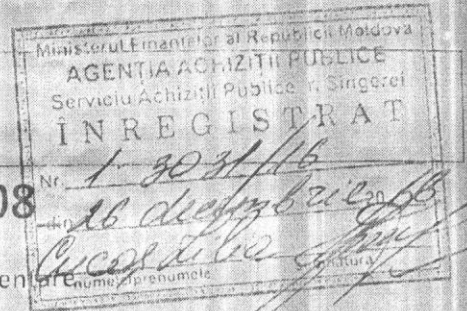 Ministerul Finanțelor al Republicii Moldova
AGENȚIA ACHIZIȚII PUBLICE
Serviciu Achiziții Publice r. Sîngerei
ÎNREGISTRAT
Nr. 1-3031/16
08
din 16 decembrie 20
numele, prenumele